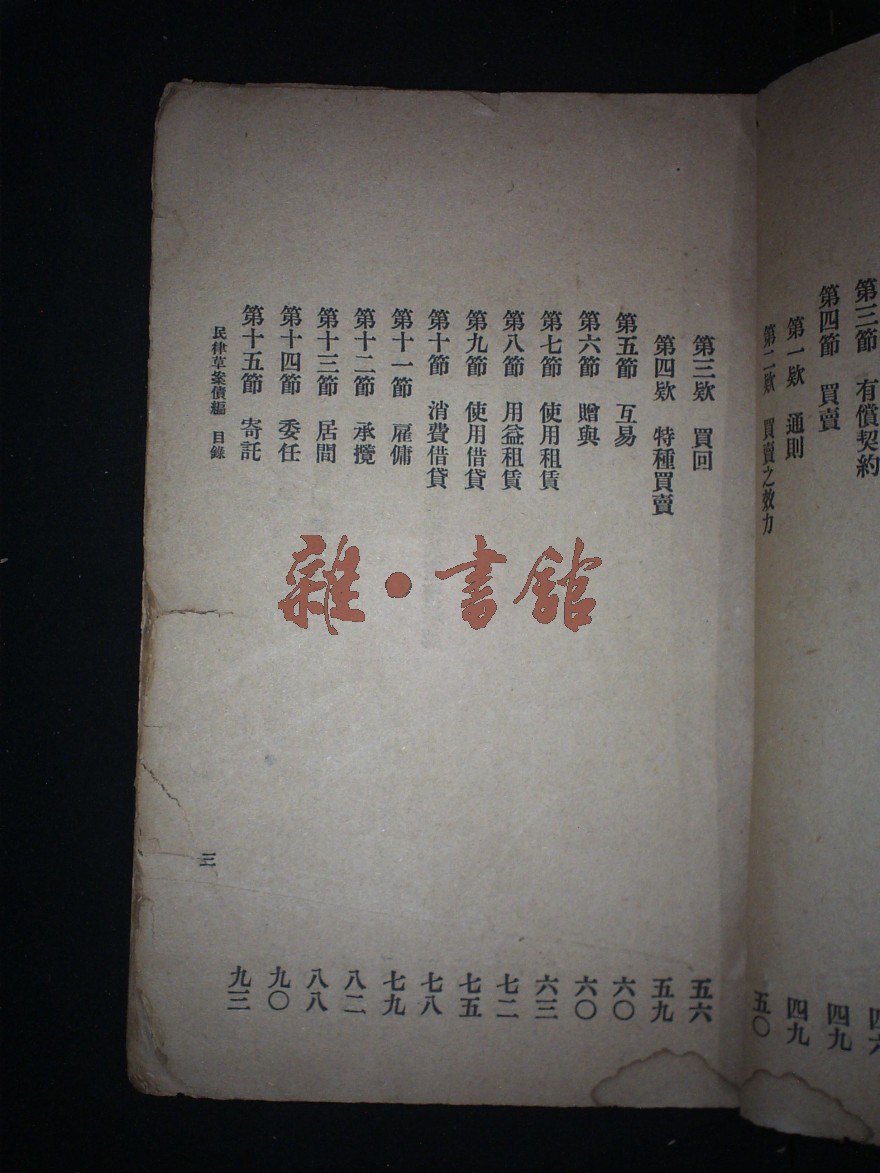 第三節　有償契約　四六
第四節　買賣　四九
第一欵　通則　四九
第二欵　買賣之效力　五〇
第三欵　買回　五六
第四欵　特種買賣　五九
第五節　互易　六〇
第六節　贈與　六〇
第七節　使用租賃　六三
第八節　用益租賃　七二
第九節　使用借貸　七五
第十節　消費借貸　七八
第十一節　雇傭　七九
第十二節　承攬　八二
第十三節　居間　八八
第十四節　委任　九〇
第十五節　寄託　九三
民律草案債編　目錄　三
雜·書館